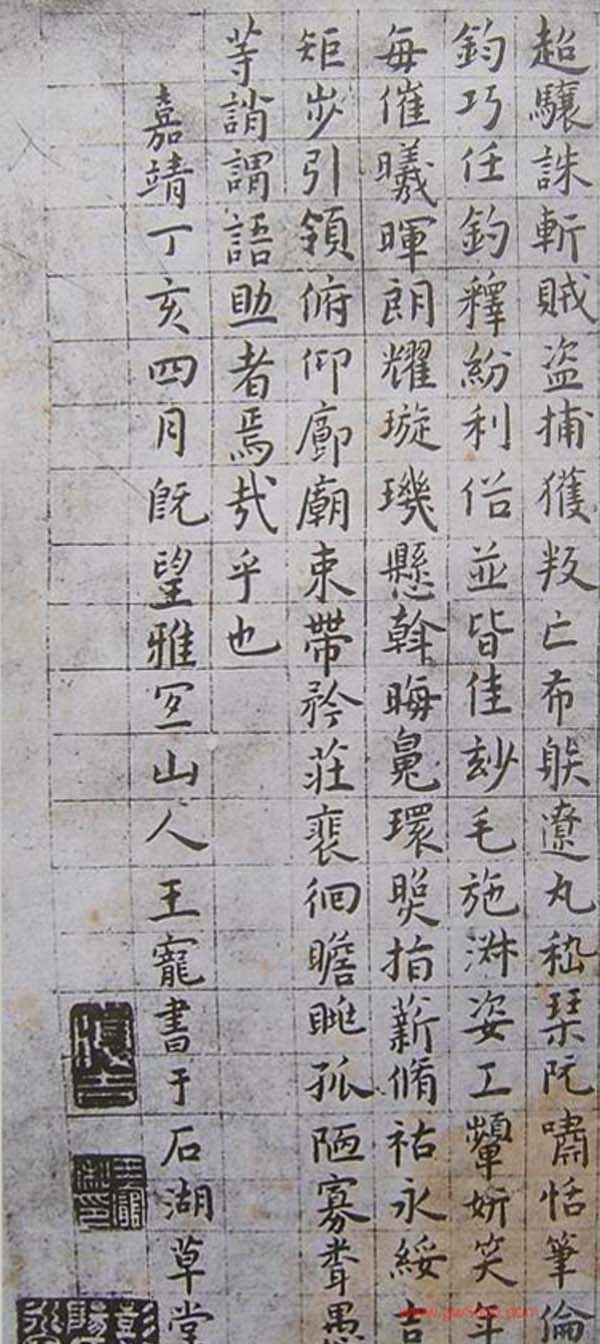 超驤誅斬賊盜捕獲叛亡布躲遼丸嵇琹阮嘯恬筆倫
鈞巧任釣釋紛利俗並皆佳妙毛施淋姿工顰妍笑年
每催曦暉朗耀璇璣懸斡晦魄環照指薪脩祜永綏吉
矩步引領俯仰廊廟束帶矜莊裴徊瞻眺孤陋寡聞愚
等誚謂語助者焉哉乎也
嘉靖丁亥四月旣望雅宜山人王寵書于石湖草堂